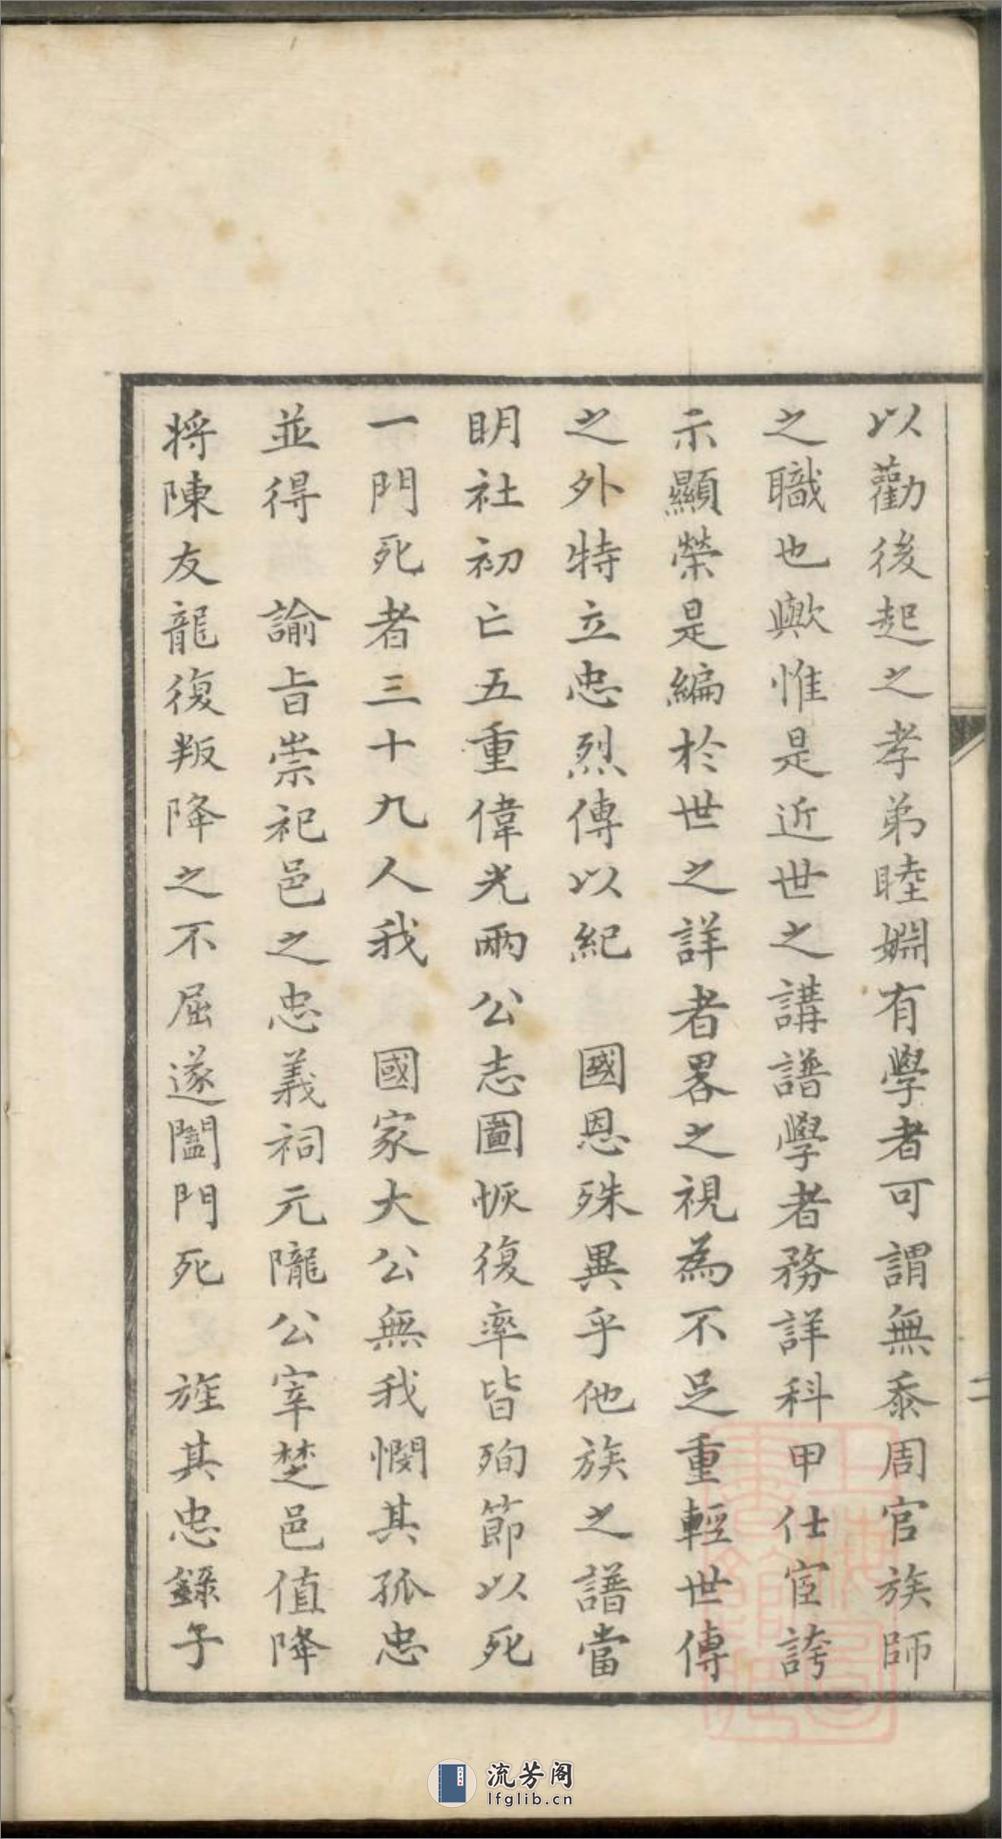 以勸後起之孝弟睦婣有學者可謂無忝周官族師
之職也歟惟是近世之講譜學者務詳科甲仕宦誇
示顯榮是編於世之詳者畧之視為不足重輕世傳
之外特立忠烈傳以紀 國恩殊異乎他族之譜當
明社初亡五重偉光兩公志圖恢復率皆殉節以死
一門死者三十九人我 國家大公無我憫其孤忠
並得 諭旨崇祀邑之忠義祠元隴公宰楚邑值降
將陳友龍復叛降之不屈遂闔門死 旌其忠錄子
二
流芳阁
lfglib.cn